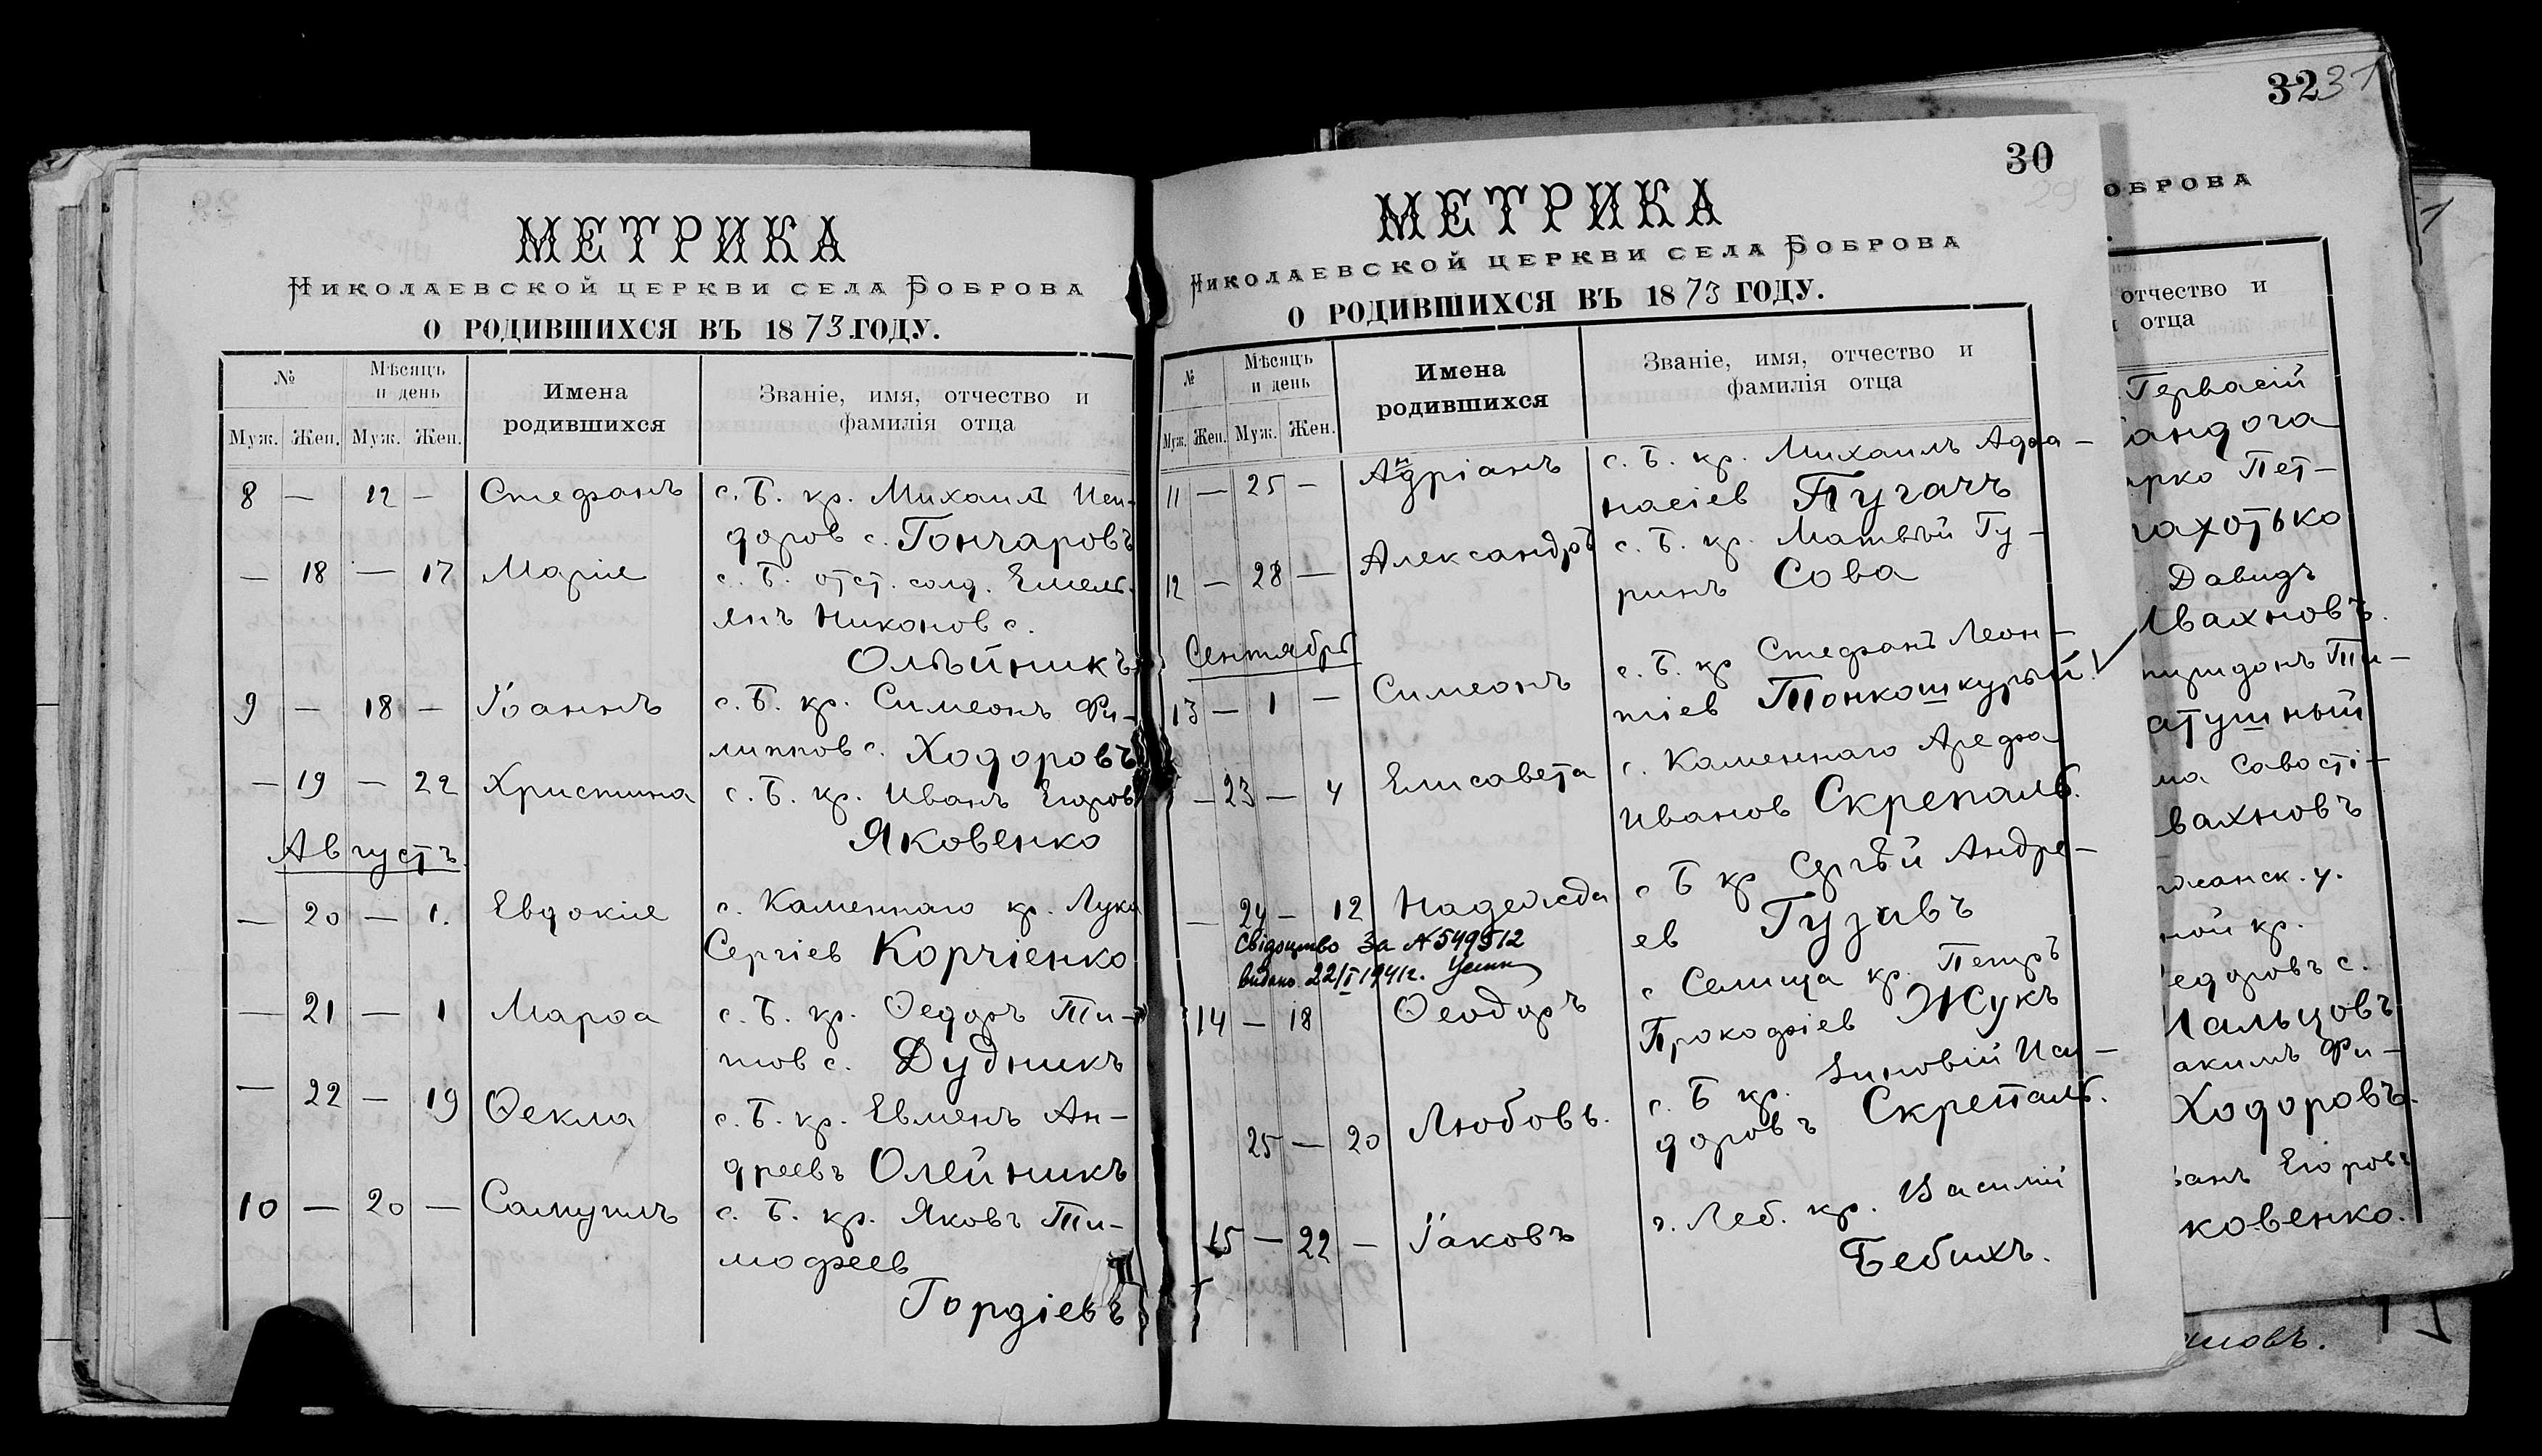 МЕТРИКА
Николаевской церкви села Боброва
О РОДИВШИХСЯ ВЪ 1873 ГОДУ.
№ Мѣсяцъ и день Имена родившихся Званіе, имя, отчество и фамилія отца
Муж. Жен. Муж. Жен.
8 — 12 — Стефанъ с. Б. кр. Михаилъ Иси-
доров с. Гончаровъ
— 18 — 17 Марія с. Б. отст. солд. Емель-
янъ Никонов с.
Олѣйникъ
9 — 18 — Іоаннъ с. Б. кр. Симеонъ Фи-
липпов с. Ходоровъ
— 19 — 22 Христина с. Б. кр. Иванъ Егоров
Яковенко
Августъ.
— 20 — 1. Евдокія с. Каменнаго кр. Лука
Сергіев Корчіенко
— 21 — 1 Марѳа с. Б. кр. Ѳедоръ Ти-
тов с. Дудникъ
— 22 — 19 Ѳекла с. Б. кр. Евменъ Ан-
дреевъ Олейникъ
10 — 20 — Самуилъ с. Б. кр. Яковъ Ти-
мофеев
Гордіевъ
30
29
МЕТРИКА
Николаевской церкви села Боброва
О РОДИВШИХСЯ ВЪ 1873 ГОДУ.
№ Мѣсяцъ и день Имена родившихся Званіе, имя, отчество и фамилія отца
Муж. Жен. Муж. Жен.
11 — 25 — Андріанъ с. Б. кр. Михаилъ Афа-
насіев Пугачъ
12 — 28 — Александръ с. Б. кр. Матвѣй Гу-
ринъ Сова
Сентябрь
13 — 1 — Симеонъ с. Б. кр Стефанъ Леон-
тіев Тонкошкурый!
— 23 — 4 Елисавета с. Каменнаго Арефа
Иванов Скрепаль.
— 24 — 12 Надежда с Б кр Сергѣй Андре-
ев Гузивъ
Свідоцтво За №549512
видано 22/I 1941г.
14 — 18 Ѳеодоръ с Селища кр. Петръ
Прокофіев Жукъ
25 — 20 Любовь. с. Б кр. Зиновій Иси-
доровъ Скрепаль.
15 — 22 — Іаковъ г. Леб. кр. Василій
Бебихъ.
32 31
оброва
отчество и
отца
Гервасій
андога
арко Пет-
ахотько
Давидъ
Ивахновъ.
пиридонъ Ти-
атушный
ма Савості-
вахновъ
жанск. у.
ной кр.
едоровъ с.
Мальцовъ
акимъ Фи-
Ходоровъ.
ванъ Егоровъ
ковенко.